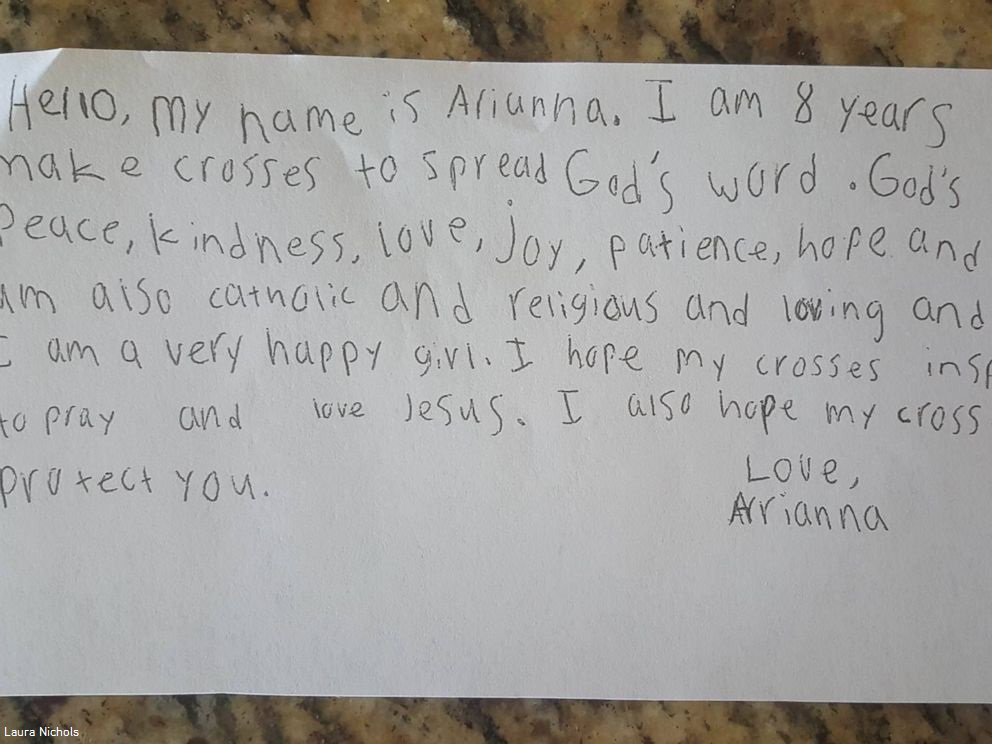 Hello, my name is Arianna. I am 8 years
make crosses to spread God's word. God's
Peace, kindness, love, joy, patience, hope and
am also catholic and religious and loving and
I am a very happy girl. I hope my crosses insp
to pray and love Jesus. I also hope my cross
protect you.
Love,
Arrianna
Laura Nichols